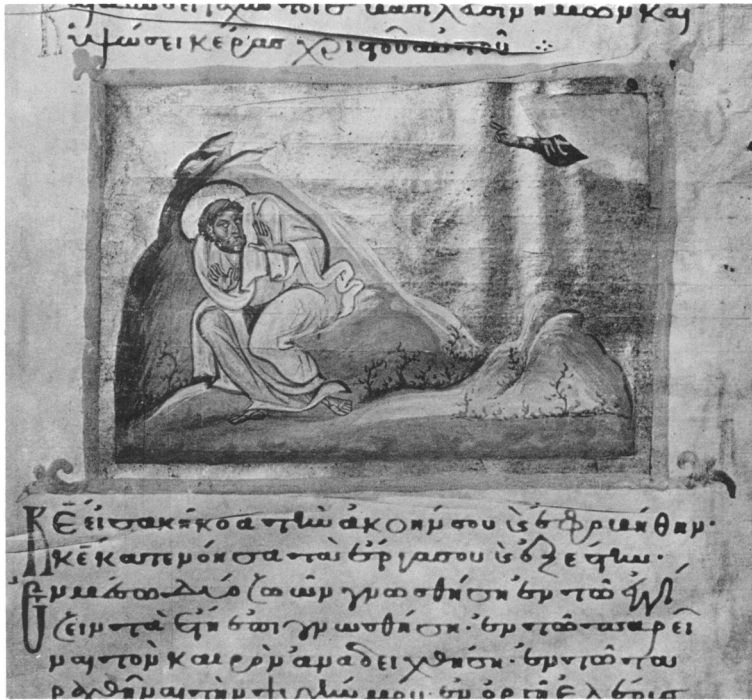 δώσει ἰσχὺν τοῖς βασιλεῦσιν ἡμῶν καὶ
ὑψώσει κέρας χριστοῦ αὐτοῦ
Κε εἰσακήκοα τὴν ἀκοήν σου κ ἐφοβήθην·
κε κατενόησα τὰ ἔργα σου κ ἐξέστην·
Ἐν μέσω δύο ζώων γνωσθήση· ἐν τῶ ἐγγί
ζειν τὰ ἔτη ἐπιγνωσθήση· ἐν τῶ παρεῖ
ναι τὸν καιρὸν ἀναδειχθήση· ἐν τῶ τα
ραχθῆναι τὴν ψυχήν μου· ἐν ὀργῆ ἐλέους